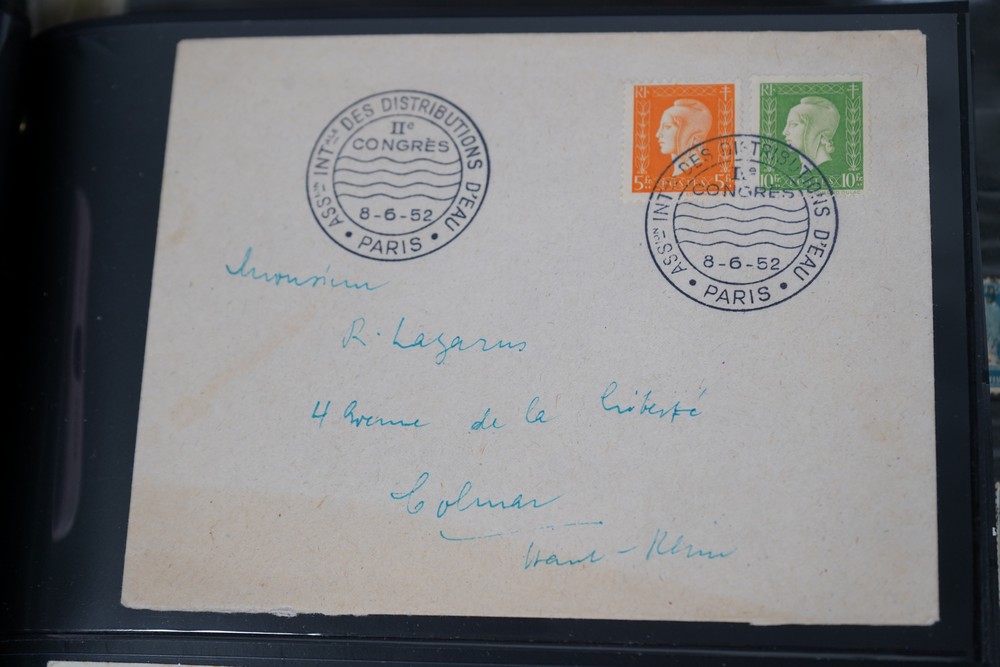 ASSon INTale DES DISTRIBUTIONS D'EAU
IIe
CONGRÈS
8-6-52
• PARIS •
RF
5f 5f
RF
10f 10f
ASSon INT DES DISTRIBUTIONS D'EAU
IIe
CONGRÈS
8-6-52
• PARIS •
Monsieur
R. Lazarus
4 Avenue de la Liberté
Colmar
Haut-Rhin